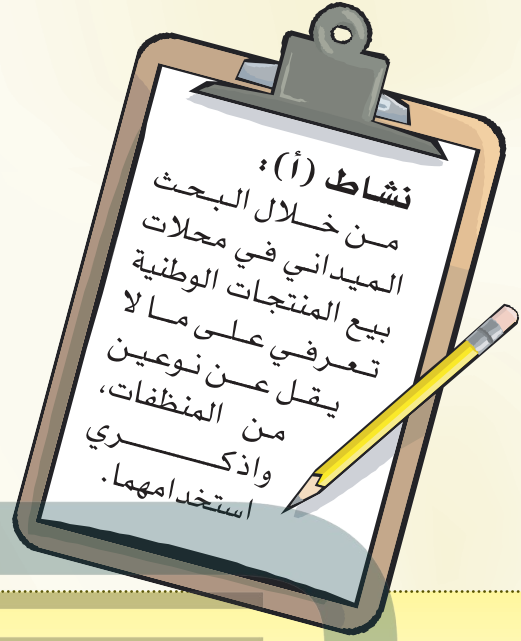 نشاط (أ):
من خلال البحث
الميداني في محلات
بيع المنتجات الوطنية
تعرفي على ما لا
يقل عن نوعين
من المنظفات،
واذكري
استخدامهما.